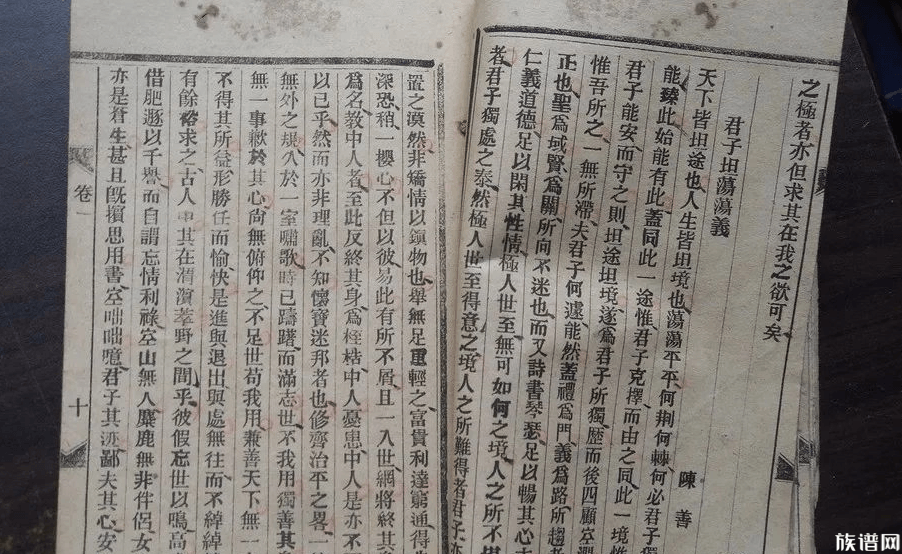 之極者亦但求其在我之欲可矣
君子坦蕩蕩義
陳善
天下皆坦途也人生皆坦境也蕩蕩平平何荆何棘何必君子獨
能臻此始能有此蓋同此一途惟君子克擇而由之同此一境惟
君子能安而守之則坦途坦境遂爲君子所獨歷而後四顧空濶
惟吾所之一無所滯夫君子何遽能然蓋禮爲門義爲路所趨者
正也聖爲域賢爲關所向不迷也而又詩書琴瑟足以暢其
仁義道德足以閑其性情極人世至無可如何之境人之所不堪
者君子獨處之泰然極人世至得意之境人之所難得者君子亦
置之漠然非矯情以鎮物也舉無足重輕之富貴利達窮通得
深恐稍一櫻心不但以彼易此有所不屑且一入世網將終其
爲名教中人者至此反終其身爲桎梏中人憂患中人是亦不
以已乎然而亦非理亂不知懷寶迷邦者也修齊治平之畧一
無外之規久於一室嘯歌時已躊躇而滿志世不我用獨善其身
無一事歉於其心尙無俯仰之不足世苟我用兼善天下無一
不得其所益形勝任而愉快是進與退出與處無往而不綽綽
有餘裕求之古人中其在渭濱莘野之間乎彼假忘世以鳴高
借肥遯以干譽而自謂忘情利祿空山無人麋鹿無非伴侶女
亦是蒼生甚且旣擯思用書空咄咄噫君子其迹鄙夫其心安
卷一
十
族谱网